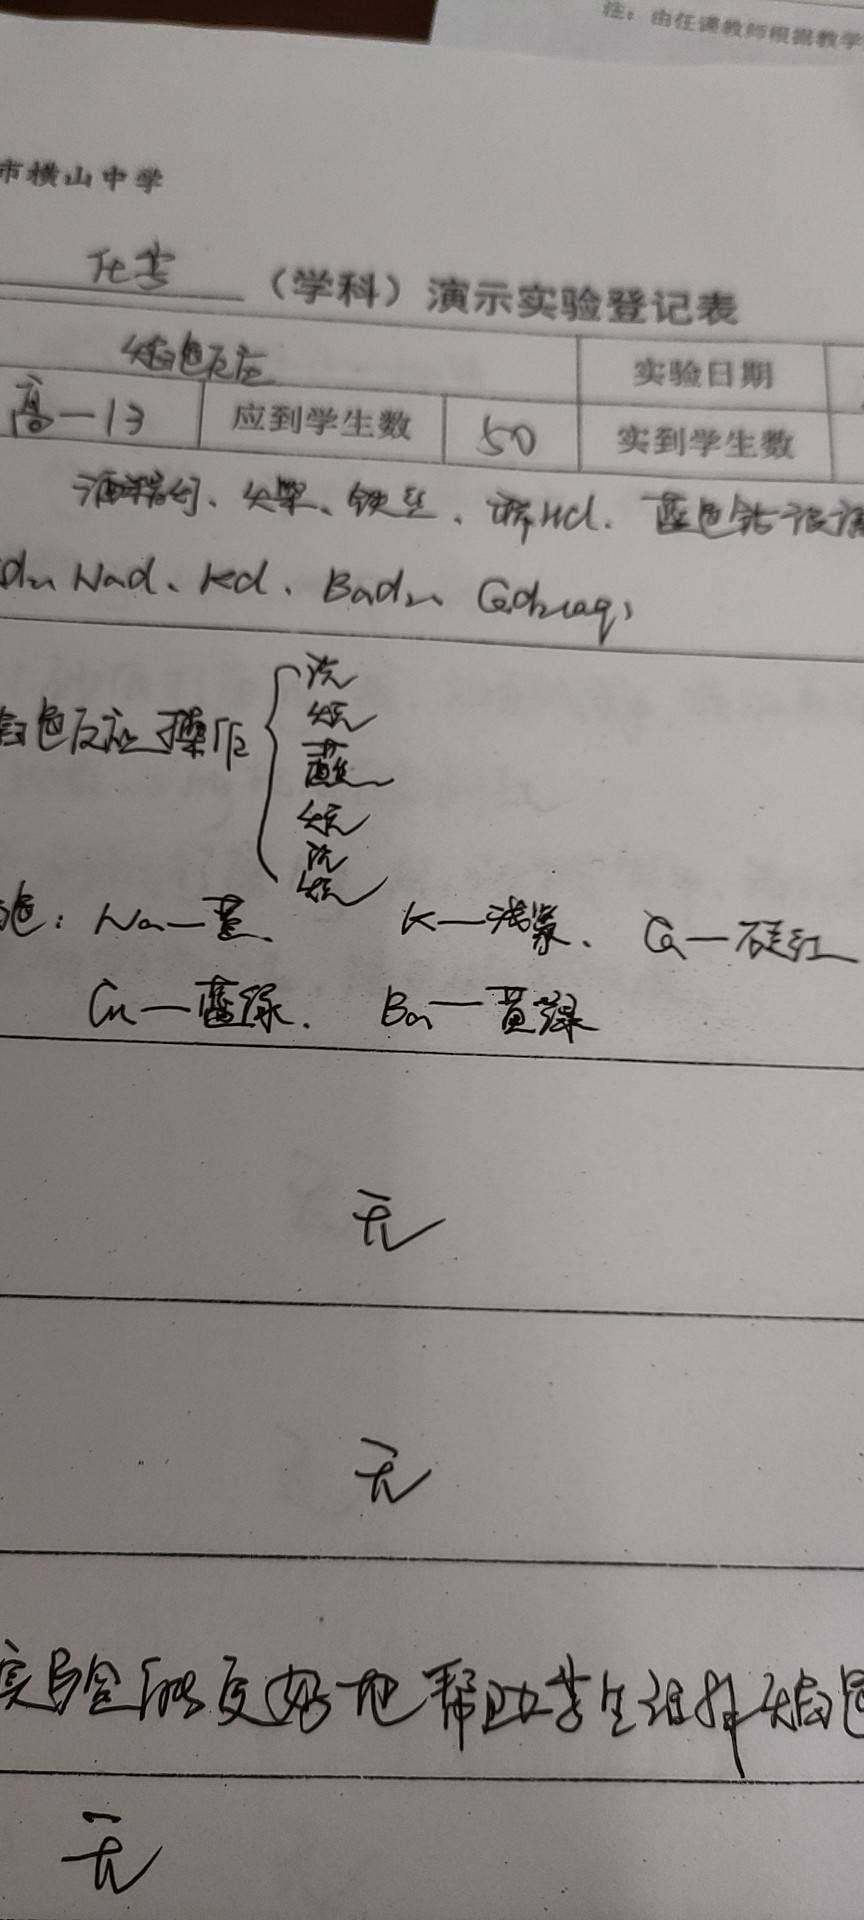 注：由任课教师根据教学
市横山中学
化学（学科）演示实验登记表
焰色反应 实验日期
高一13 应到学生数 50 实到学生数
酒精灯、火柴、铁丝、稀HCl、蓝色钴玻璃
NaCl、KCl、BaCl₂、CaCl₂(aq)
色反应操作
洗
烧
蘸
烧
洗
烧
色：Na—黄、 K—浅紫、 Ca—砖红
Cu—蓝绿、 Ba—黄绿
无
无
实验能更好地帮助学生理解焰色
无